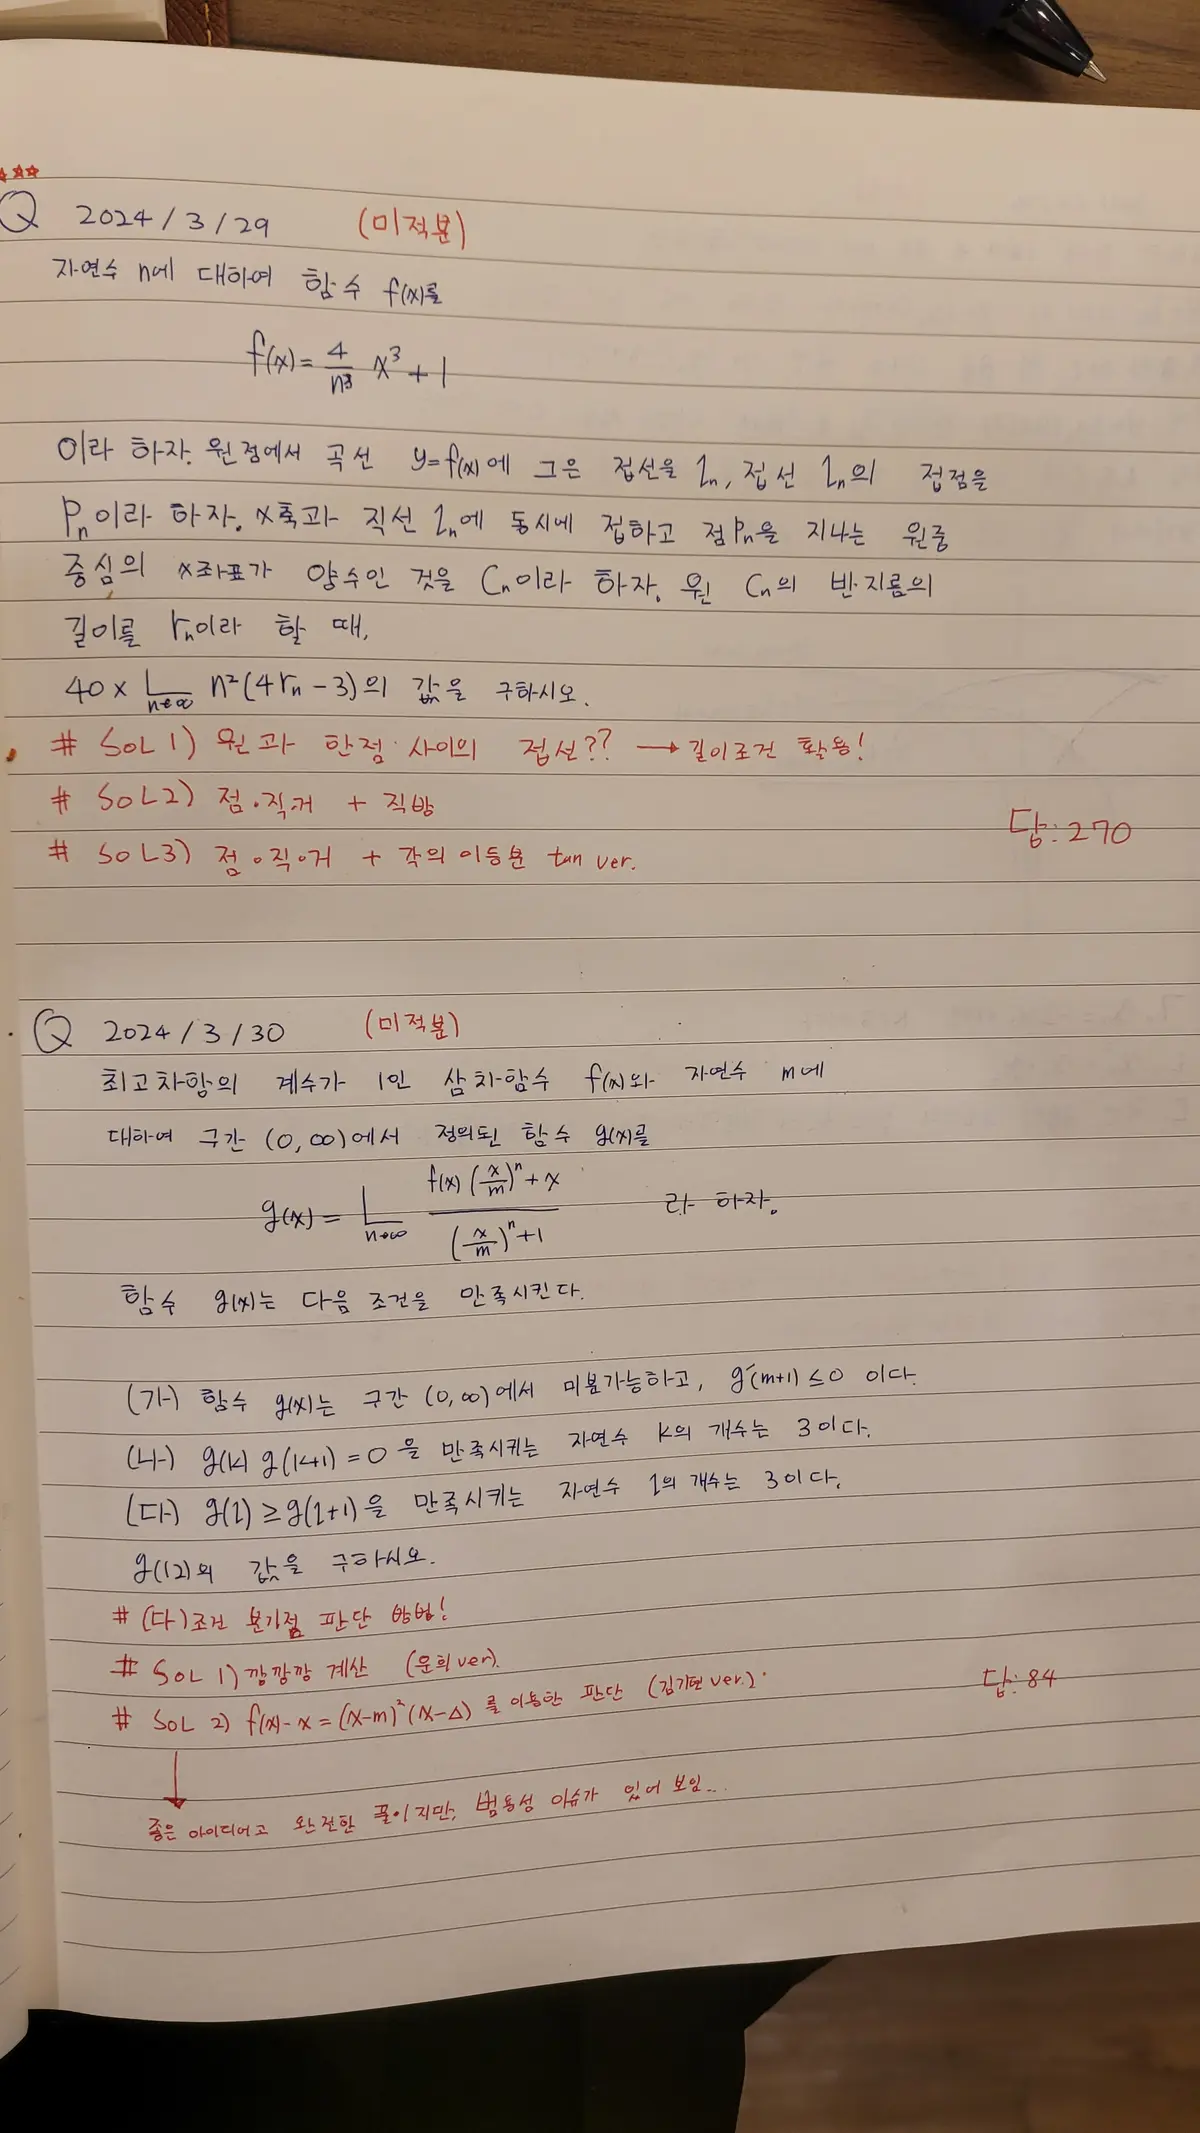 ☆☆☆
Q 2024 / 3 / 29 (미적분)
자연수 n에 대하여 함수 f(x)를
f(x) = 4/n³ x³ + 1
이라 하자. 원점에서 곡선 y=f(x)에 그은 접선을 lₙ, 접선 lₙ의 접점을
Pₙ이라 하자. x축과 직선 lₙ에 동시에 접하고 점 Pₙ을 지나는 원중
중심의 x좌표가 양수인 것을 Cₙ이라 하자. 원 Cₙ의 반지름의
길이를 rₙ이라 할 때,
40 × L n→∞ n²(4rₙ - 3)의 값을 구하시오.
# SOL 1) 원과 한점 사이의 접선?? → 길이조건 활용!
# SOL 2) 점·직·거 + 직방
답: 270
# SOL 3) 점·직·거 + 각의 이등분 tan ver.
Q 2024 / 3 / 30 (미적분)
최고차항의 계수가 1인 삼차함수 f(x)와 자연수 m에
대하여 구간 (0, ∞)에서 정의된 함수 g(x)를
g(x) = L n→∞ (f(x)(x/m)ⁿ + x) / ((x/m)ⁿ + 1) 라 하자.
함수 g(x)는 다음 조건을 만족시킨다.
(가) 함수 g(x)는 구간 (0, ∞)에서 미분가능하고, g'(m+1) ≤ 0 이다.
(나) g(k) g(k+1) = 0 을 만족시키는 자연수 k의 개수는 3이다.
(다) g(l) ≥ g(l+1)을 만족시키는 자연수 l의 개수는 3이다.
g(12)의 값을 구하시오.
# (다)조건 분기점 판단 방법!
# SOL 1) 깡깡깡 계산 (윤희 ver).
# SOL 2) f(x) - x = (x-m)²(x-△) 를 이용한 판단 (김기현 ver.)
답: 84
↓
좋은 아이디어고 완전한 풀이지만, 범용성 이슈가 있어 보임...